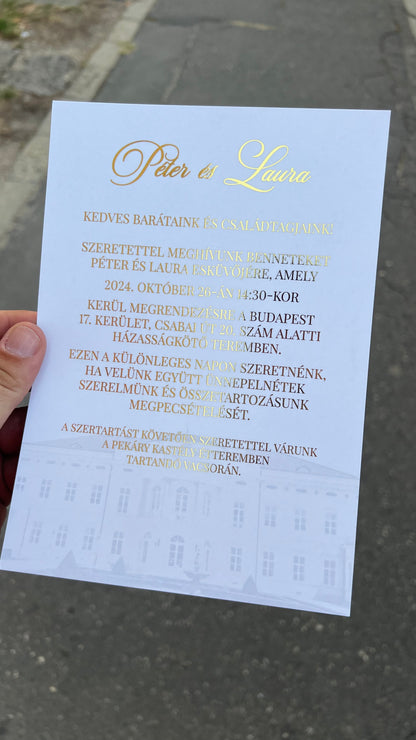 Péter és Laura
KEDVES BARÁTAINK ÉS CSALÁDTAGJAINK!
SZERETETTEL MEGHÍVUNK BENNETEKET
PÉTER ÉS LAURA ESKÜVŐJÉRE, AMELY
2024. OKTÓBER 26-ÁN 14:30-KOR
KERÜL MEGRENDEZÉSRE A BUDAPEST
17. KERÜLET, CSABAI ÚT 20. SZÁM ALATTI
HÁZASSÁGKÖTŐ TEREMBEN.
EZEN A KÜLÖNLEGES NAPON SZERETNÉNK,
HA VELÜNK EGYÜTT ÜNNEPELNÉTEK
SZERELMÜNK ÉS ÖSSZETARTOZÁSUNK
MEGPECSÉTELÉSÉT.
A SZERTARTÁST KÖVETŐEN SZERETETTEL VÁRUNK
A PEKÁRY KASTÉLY ÉTTEREMBEN
TARTANDÓ VACSORÁN.